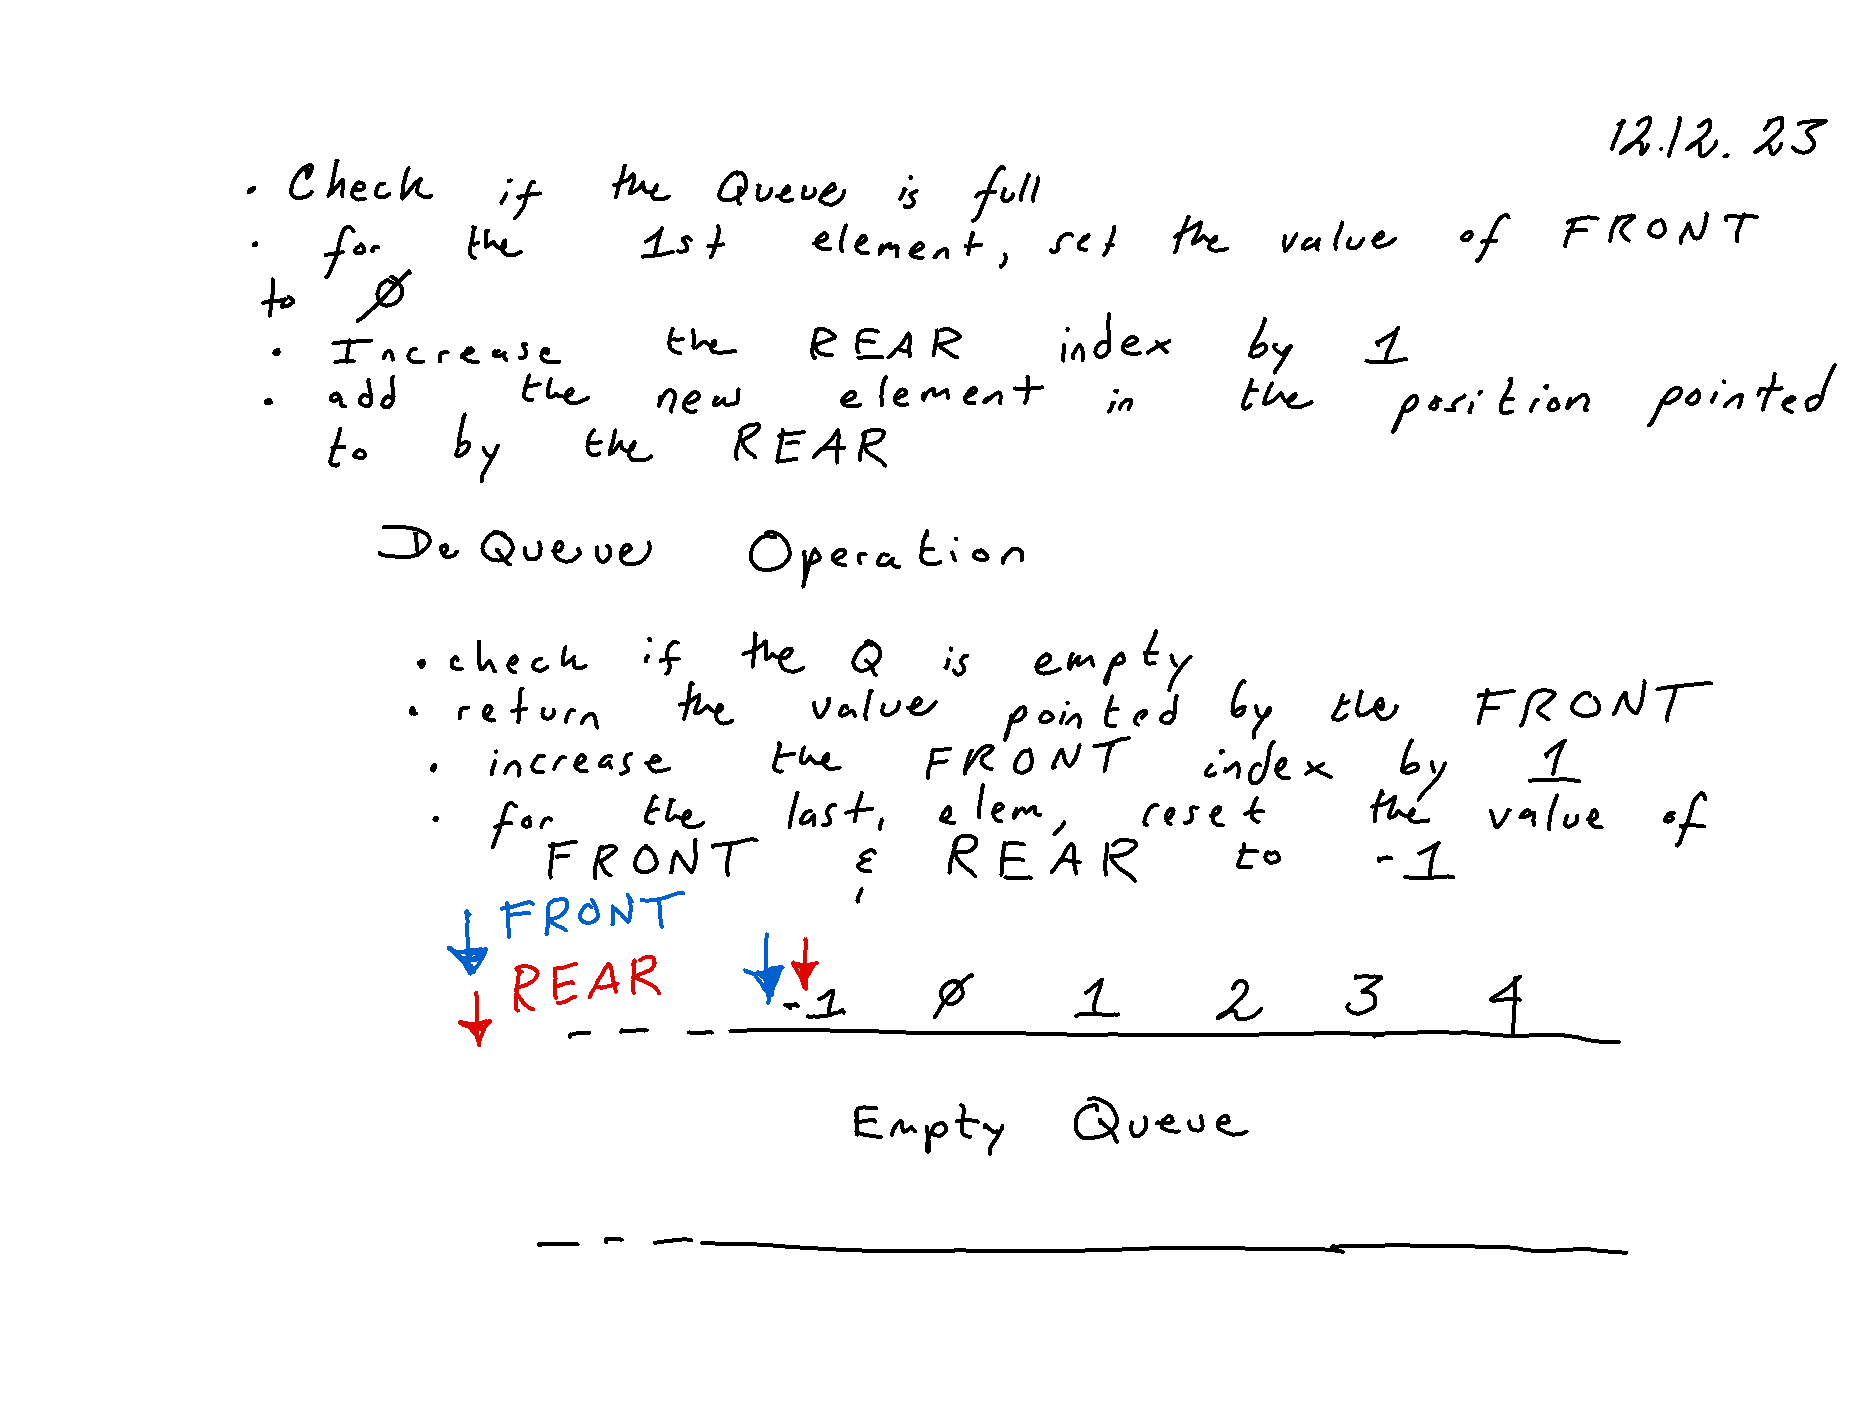 12.12.23
· Check if the Queue is full
· for the 1st element, set the value of FRONT
to Ø
· Increase the REAR index by 1
· add the new element in the position pointed
to by the REAR
DeQueue Operation
· check if the Q is empty
· return the value pointed by the FRONT
· increase the FRONT index by 1
· for the last, elem, reset the value of
FRONT & REAR to -1
↓ FRONT
↓ REAR
-1 Ø 1 2 3 4
Empty Queue